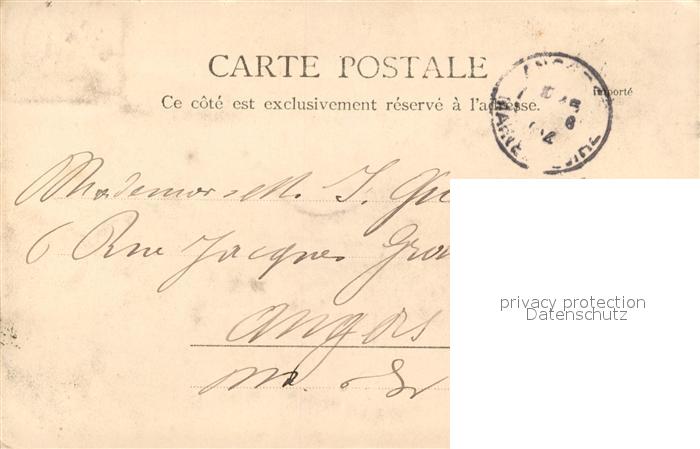 CARTE POSTALE
Ce côté est exclusivement réservé à l'adresse.
Importé
Mademoiselle J.
6 Rue Jacques
Angers
privacy protection
Datenschutz